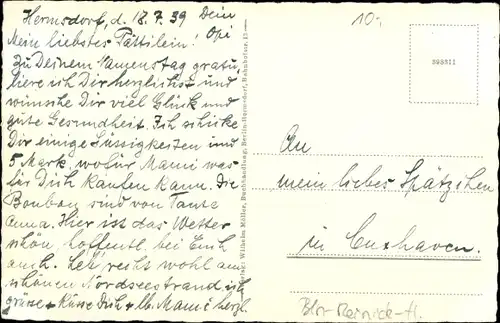 Hermsdorf, d. 18.7.39 Dein
Mein liebstes Tättilein! Opi
Zu Deinem Namenstag gratu-
liere ich Dir herzlichst und
wünsche Dir viel Glück und
gute Gesundheit. Ich schicke
Dir einige Süssigkeiten und
5 Mark, wofür Mami was
für Dich kaufen kann. Die
Bonbon sind von Tante
Anna. Hier ist das Wetter
schön, hoffentl. bei Euch
auch. Leb recht wohl am
schönen Nordseestrand ich
grüsse + küsse Dich + lb. Mami herzl.
Verlag: Wilhelm Möller, Buchhandlung, Berlin-Hermsdorf, Bahnhofstr. 13
10.-
An
mein liebes Spätzchen
in Cuxhaven.